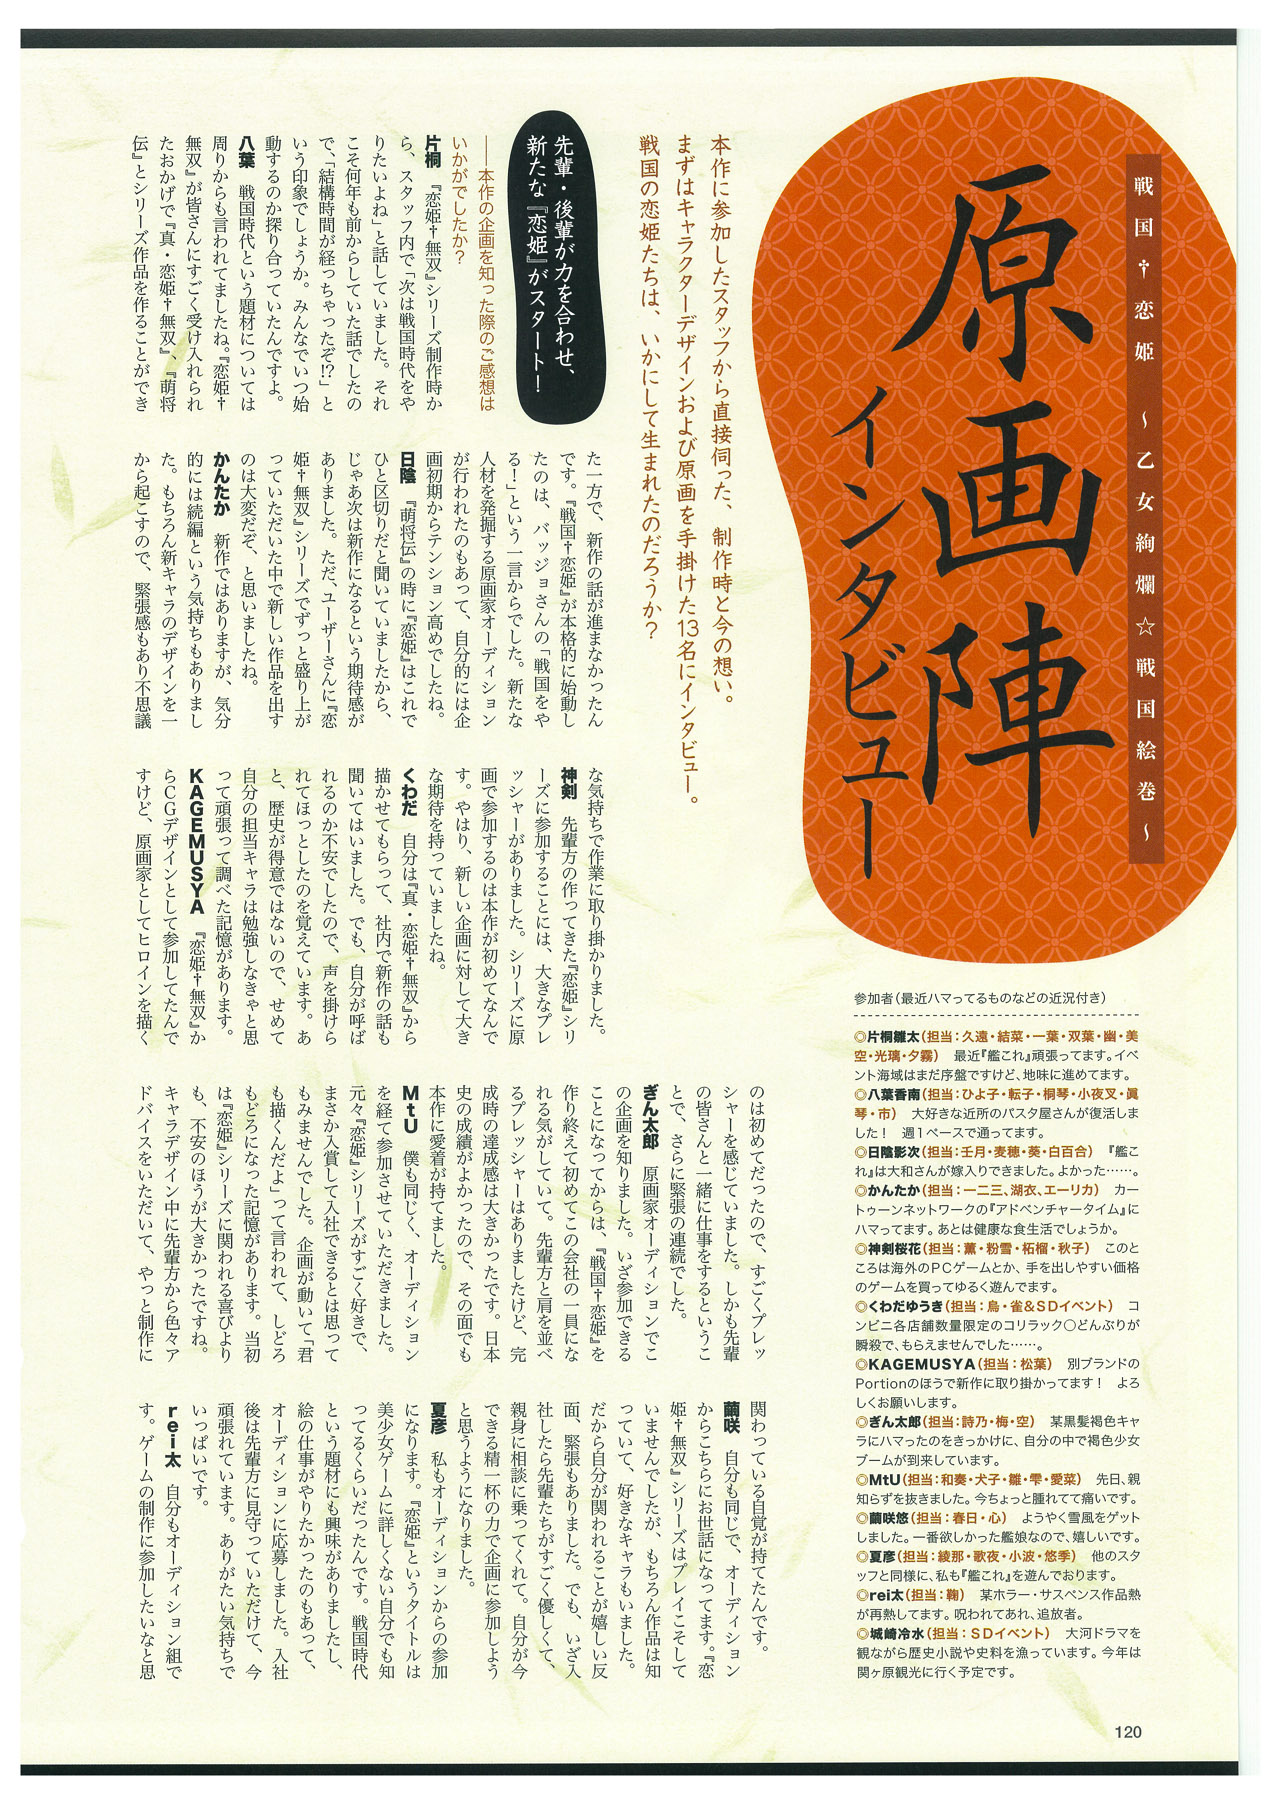 戦国†恋姫 ～乙女絢爛☆戦国絵巻～
原画陣
インタビュー
本作に参加したスタッフから直接伺った、制作時と今の想い。
まずはキャラクターデザインおよび原画を手掛けた13名にインタビュー。
戦国の恋姫たちは、いかにして生まれたのだろうか？
先輩・後輩が力を合わせ、
新たな『恋姫』がスタート！
――本作の企画を知った際のご感想は
いかがでしたか？
片桐　『恋姫†無双』シリーズ制作時か
ら、スタッフ内で「次は戦国時代をや
りたいよね」と話していました。それ
こそ何年も前からしていた話でしたの
で、「結構時間が経っちゃったぞ!?」と
いう印象でしょうか。みんなでいつ始
動するのか探り合っていたんですよ。
八葉　戦国時代という題材については
周りからも言われてましたね。『恋姫†
無双』が皆さんにすごく受け入れられ
たおかげで『真・恋姫†無双』、『萌将
伝』とシリーズ作品を作ることができ
た一方で、新作の話が進まなかったん
です。『戦国†恋姫』が本格的に始動し
たのは、バッジョさんの「戦国をや
る！」という一言からでした。新たな
人材を発掘する原画家オーディション
が行われたのもあって、自分的には企
画初期からテンション高めでしたね。
日陰　『萌将伝』の時に『恋姫』はこれで
ひと区切りだと聞いていましたから、
じゃあ次は新作になるという期待感が
ありました。ただ、ユーザーさんに『恋
姫†無双』シリーズでずっと盛り上が
っていただいた中で新しい作品を出す
のは大変だぞ、と思いましたね。
かんたか　新作ではありますが、気分
的には続編という気持ちもありまし
た。もちろん新キャラのデザインを一
から起こすので、緊張感もあり不思議
な気持ちで作業に取り掛かりました。
神剣　先輩方の作ってきた『恋姫』シリ
ーズに参加することには、大きなプレ
ッシャーがありました。シリーズに原
画で参加するのは本作が初めてなんで
す。やはり、新しい企画に対して大き
な期待を持っていましたね。
くわだ　自分は『真・恋姫†無双』から
描かせてもらって、社内で新作の話も
聞いてはいました。でも、自分が呼ば
れるのか不安でしたので、声を掛けら
れてほっとしたのを覚えています。あ
と、歴史が得意ではないので、せめて
自分の担当キャラは勉強しなきゃと思
って頑張って調べた記憶があります。
KAGEMUSYA　『恋姫†無双』か
らCGデザインとして参加してたんで
すけど、原画家としてヒロインを描く
のは初めてだったので、すごくプレッ
シャーを感じていました。しかも先輩
の皆さんと一緒に仕事をするというこ
とで、さらに緊張の連続でした。
ぎん太郎　原画家オーディションでこ
の企画を知りました。いざ参加できる
ことになってからは、『戦国†恋姫』を
作り終えて初めてこの会社の一員にな
れる気がしていて。先輩方と肩を並べ
るプレッシャーはありましたけど、完
成時の達成感は大きかったです。日本
史の成績がよかったので、その面でも
本作に愛着が持てました。
MtU　僕も同じく、オーディション
を経て参加させていただきました。
元々『恋姫』シリーズがすごく好きで、
まさか入賞して入社できるとは思って
もみませんでした。企画が動いて「君
も描くんだよ」って言われて、しどろ
もどろになった記憶があります。当初
は『恋姫』シリーズに関われる喜びより
も、不安のほうが大きかったですね。
キャラデザイン中に先輩方から色々ア
ドバイスをいただいて、やっと制作に
関わっている自覚が持てたんです。
繭咲　自分も同じで、オーディション
からこちらにお世話になってます。『恋
姫†無双』シリーズはプレイこそして
いませんでしたが、もちろん作品は知
っていて、好きなキャラもいました。
だから自分が関われることが嬉しい反
面、緊張もありました。でも、いざ入
社したら先輩たちがすごく優しくて、
親身に相談に乗ってくれて。自分が今
できる精一杯の力で企画に参加しよう
と思うようになりました。
夏彦　私もオーディションからの参加
になります。『恋姫』というタイトルは
美少女ゲームに詳しくない自分でも知
ってるくらいだったんです。戦国時代
という題材にも興味がありましたし、
絵の仕事がやりたかったのもあって、
オーディションに応募しました。入社
後は先輩方に見守っていただけて、今
頑張れています。ありがたい気持ちで
いっぱいです。
rei太　自分もオーディション組で
す。ゲームの制作に参加したいなと思
参加者（最近ハマってるものなどの近況付き）
◎片桐雛太（担当：久遠・結菜・一葉・双葉・幽・美
空・光璃・夕霧）　最近『艦これ』頑張ってます。イベ
ント海域はまだ序盤ですけど、地味に進めてます。
◎八葉香南（担当：ひよ子・転子・桐琴・小夜叉・眞
琴・市）　大好きな近所のパスタ屋さんが復活しま
した！　週1ペースで通ってます。
◎日陰影次（担当：壬月・麦穂・葵・白百合）　『艦こ
れ』は大和さんが嫁入りできました。よかった……。
◎かんたか（担当：一二三、湖衣、エーリカ）　カー
トゥーンネットワークの『アドベンチャータイム』に
ハマってます。あとは健康な食生活でしょうか。
◎神剣桜花（担当：薫・粉雪・柘榴・秋子）　このと
ころは海外のPCゲームとか、手を出しやすい価格
のゲームを買ってゆるく遊んでます。
◎くわだゆうき（担当：烏・雀＆SDイベント）　コ
ンビニ各店舗数量限定のコリラック○どんぶりが
瞬殺で、もらえませんでした……。
◎KAGEMUSYA（担当：松葉）　別ブランドの
Portionのほうで新作に取り掛かってます！　よろ
しくお願いします。
◎ぎん太郎（担当：詩乃・梅・空）　某黒髪褐色キャ
ラにハマったのをきっかけに、自分の中で褐色少女
ブームが到来しています。
◎MtU（担当：和奏・犬子・雛・雫・愛菜）　先日、親
知らずを抜きました。今ちょっと腫れてて痛いです。
◎繭咲悠（担当：春日・心）　ようやく雪風をゲット
しました。一番欲しかった艦娘なので、嬉しいです。
◎夏彦（担当：綾那・歌夜・小波・悠季）　他のスタ
ッフと同様に、私も『艦これ』を遊んでおります。
◎rei太（担当：鞠）　某ホラー・サスペンス作品熱
が再熱してます。呪われてあれ、追放者。
◎城崎冷水（担当：SDイベント）　大河ドラマを
観ながら歴史小説や史料を漁っています。今年は
関ヶ原観光に行く予定です。
120